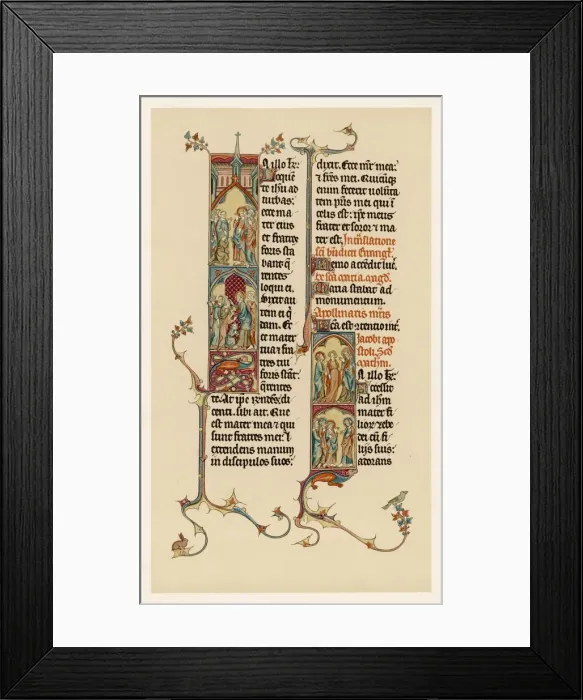 N illo tꝑ:
loquē
te ihu ad
turbas:
ecce ma
ter eius
et fratres
foris sta
bant q̄
rentes
loqui ei.
Dixit au
tem ei q̇
dam. Ec
ce mater
tua ⁊ frr̄
tres tui
foris stāt:
q̄rentes
te. At ip̄e rn̄dēs di
centi sibi ait. Que
est mater mea ⁊ qui
sunt fratres mei: ⁊
extendens manum
in discipulos suos:
dixit. Ecce mr̄ mea:
⁊ fr̄es mei. Quicūq̄
enim fecerit volūta
tem pr̄is mei qui ī
celis est: ip̄e meus
frater et soror ⁊ ma
ter est.
Nemo accēdit luc̄.
Maria stabat ad
monumentum.
Apollinaris mr̄is
Jacobi apo
stoli. Scd̄
math̄m.
N illo tꝑ:
Accessit
ad ihm
mater fi
lior⁊ zebe
dei cū fi
lijs suis:
adorans